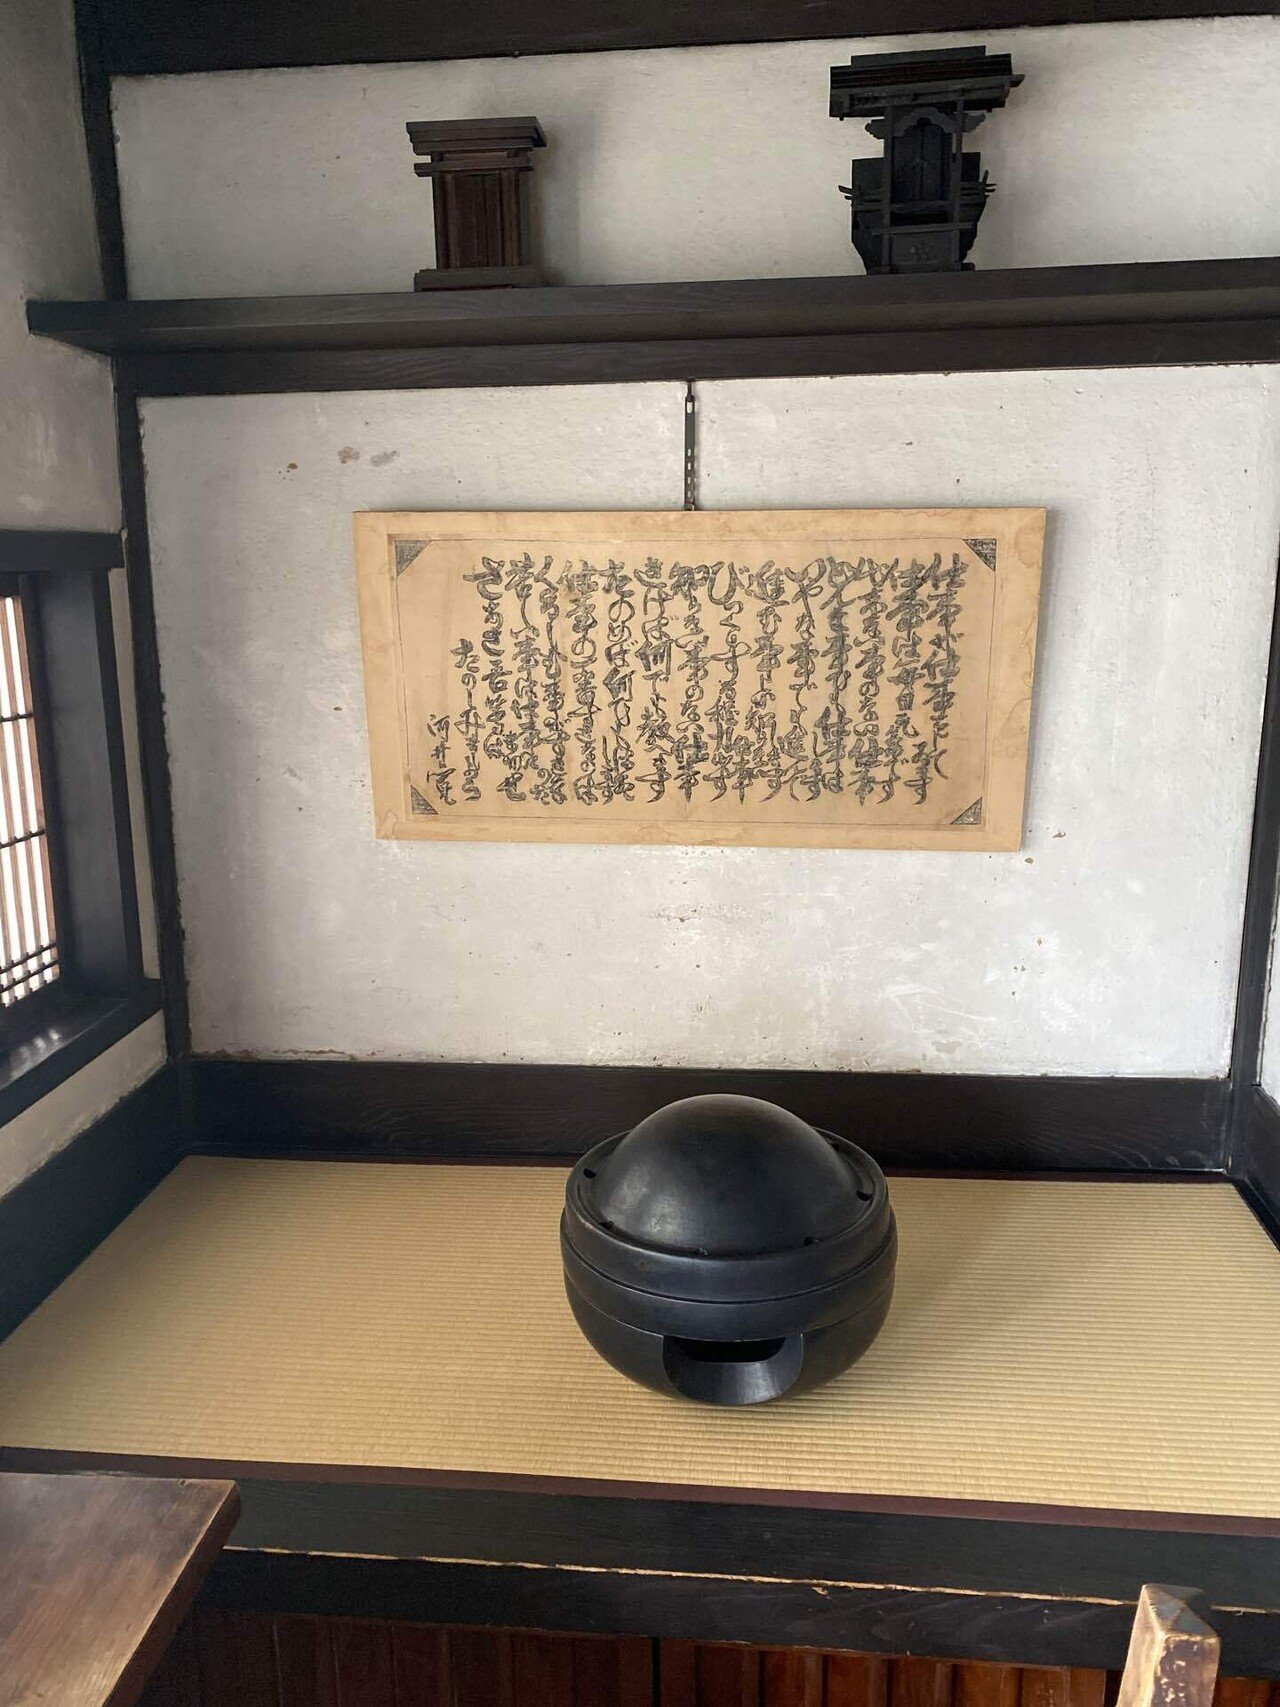 仕事が仕事をしてゐます
仕事は毎日元気です
出来ない事のない仕事
どんな事でも仕事はします
いやな事でも進んでします
進む事しか知らない仕事
びっくりする程力出す
知らない事のない仕事
きけば何でも教へます
たのめば何でもはたします
仕事の一番すきなのは
くるしむ事がすきなのだ
苦しい事は仕事にまかせ
さあさ吾等は
たのしみませう
河井寛